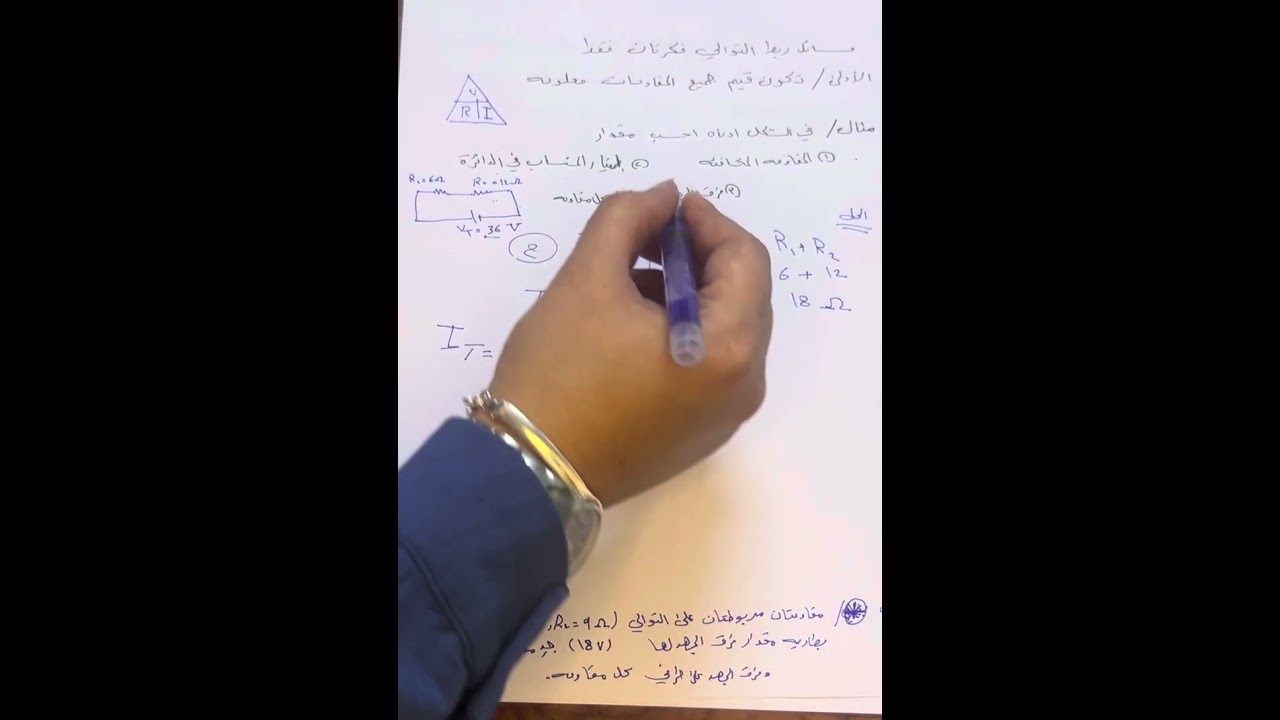 مسائل ربط التوالي فكرتان فقط
الأولى/ تكون قيم جميع المقاومات معلومه
V
R I
مثال/ في الشكل ادناه احسب مقدار
① المقاومه المكافئه ② التيار المنساب في الدائرة
③ فرق كل مقاومه
R₁=6Ω R₂=12Ω
V_T=36 V
الحل
R₁ + R₂
6 + 12
18 Ω
I_T=
مقاومتان مربوطتان على التوالي (R₂=9Ω,
بطاريه مقدار فرق الجهد لها (18V) جد
وفرق الجهد على طرفي كل مقاومه.